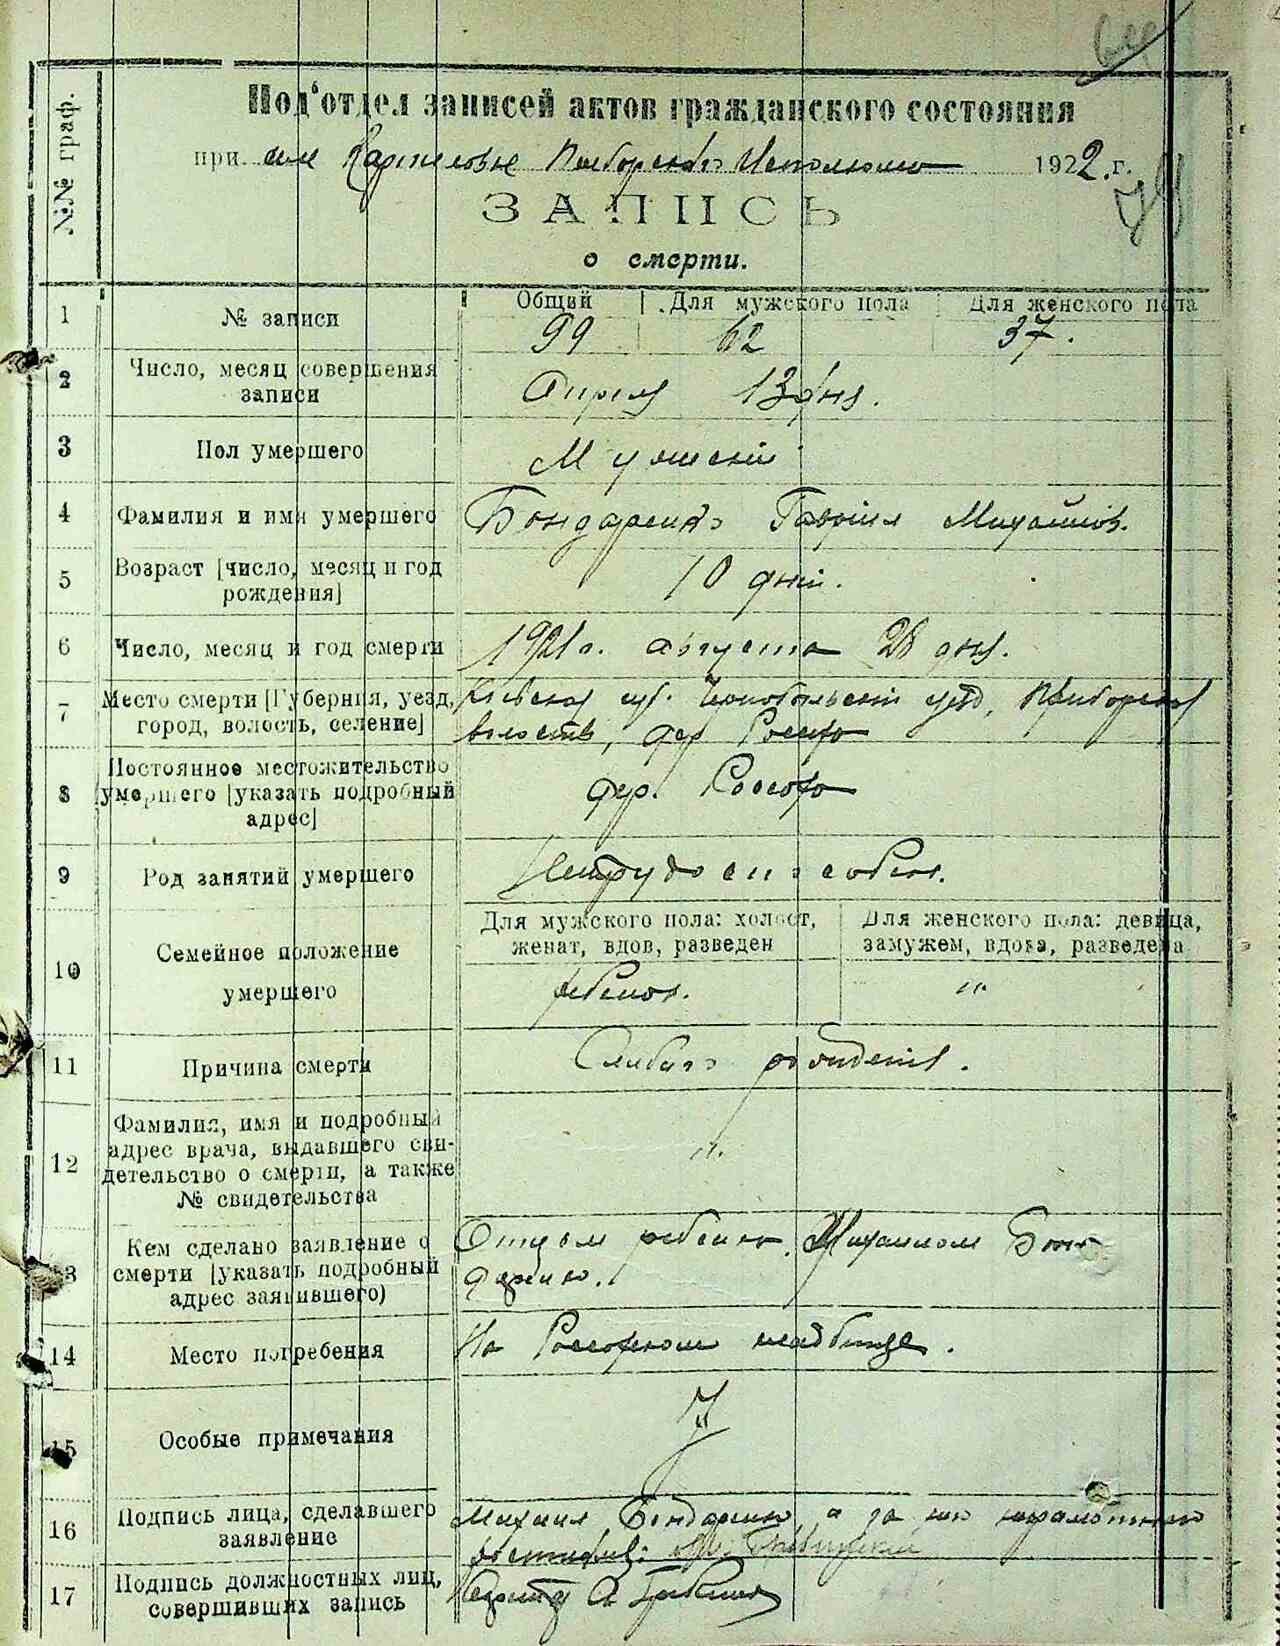 Под'отдел записей актов гражданского состояния
при 1922. г.
ЗАПИСЬ
о смерти.
№№ граф.
1 № записи Общий Для мужского пола Для женского пола
99 62 37.
2 Число, месяц совершения записи
Апреля 13 дня.
3 Пол умершего
Мужской
4 Фамилия и имя умершего
Бондаренко Гавриил Михайлов.
5 Возраст [число, месяц и год рождения]
10 дней.
6 Число, месяц и год смерти
1921 г. августа 28 дня.
7 Место смерти [Губерния, уезд, город, волость, селение]
Киевская губ. Чернобыльский уезд, Приборская
волость, дер.
8 Постоянное местожительство умершего [указать подробный адрес]
дер.
9 Род занятий умершего
Нетрудоспособен.
10 Семейное положение умершего
Для мужского пола: холост, женат, вдов, разведен
Для женского пола: девица, замужем, вдова, разведена
ребенок. "
11 Причина смерти
рождения.
12 Фамилия, имя и подробный адрес врача, выдавшего свидетельство о смерти, а также № свидетельства
"
13 Кем сделано заявление о смерти [указать подробный адрес заявившего)
Отцом ребенка Михаилом Бон
даренко.
14 Место погребения
На кладбище.
15 Особые примечания
16 Подпись лица, сделавшего заявление
Михаил Бондаренко, а за него неграмотного
17 Подпись должностных лиц, совершивших запись